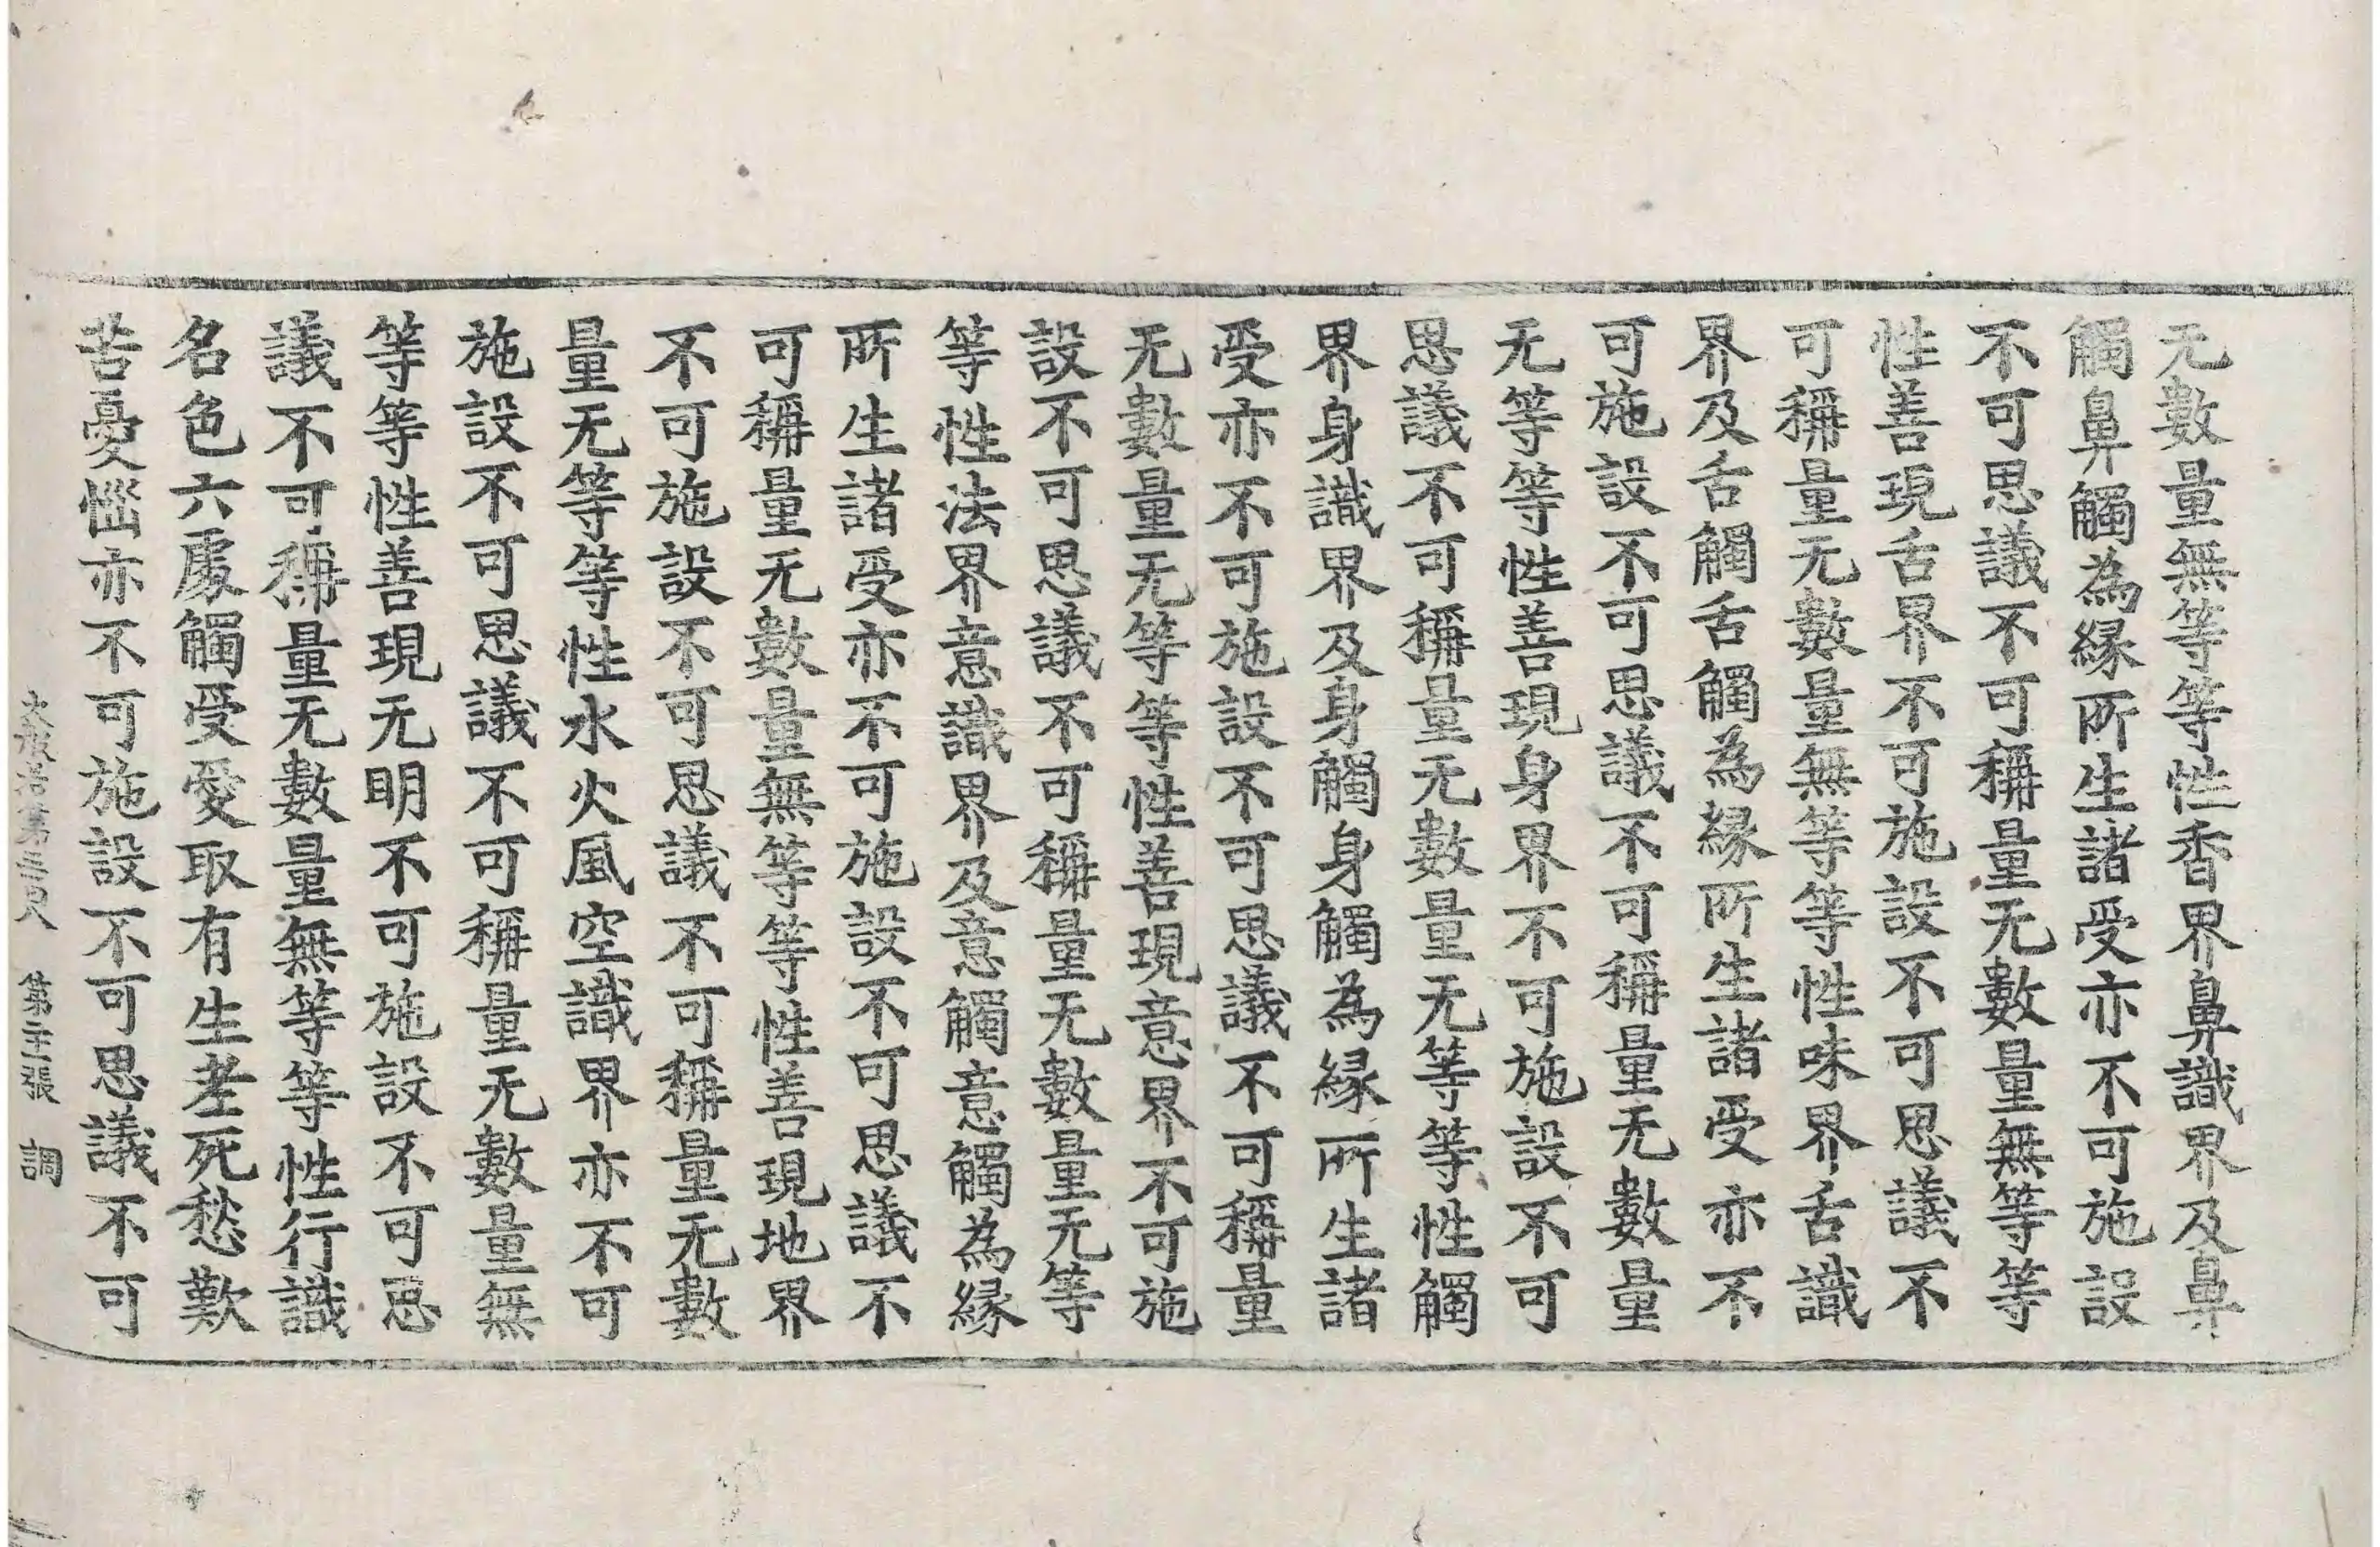 无數量無等等性香界鼻識界及鼻
觸鼻觸為縁所生諸受亦不可施設
不可思議不可稱量无數量無等等
性善現舌界不可施設不可思議不
可稱量无數量無等等性味界舌識
界及舌觸舌觸為縁所生諸受亦不
可施設不可思議不可稱量无數量
无等等性善現身界不可施設不可
思議不可稱量无數量无等等性觸
界身識界及身觸身觸為縁所生諸
受亦不可施設不可思議不可稱量
无數量无等等性善現意界不可施
設不可思議不可稱量无數量无等
等性法界意識界及意觸意觸為縁
所生諸受亦不可施設不可思議不
可稱量无數量無等等性善現地界
不可施設不可思議不可稱量无數
量无等等性水火風空識界亦不可
施設不可思議不可稱量无數量無
等等性善現无明不可施設不可思
議不可稱量无數量無等等性行識
名色六處觸受愛取有生老死愁歎
苦憂惱亦不可施設不可思議不可
大般若第三 第 張 調